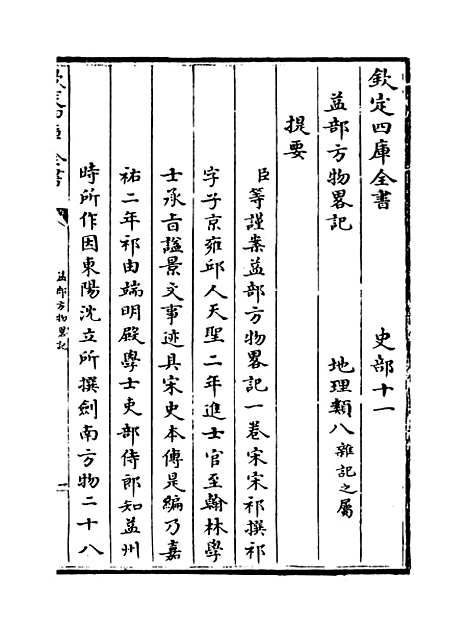 欽定四庫全書
史部十一
益部方物畧記
地理類八雜記之屬
提要
臣等謹案益部方物畧記一卷宋宋祁撰祁
字子京雍邱人天聖二年進士官至翰林學
士承旨諡景文事迹具宋史本傳是編乃嘉
祐二年祁由端明殿學士吏部侍郎知益州
時所作因東陽沈立所撰劍南方物二十八
益部方物畧記